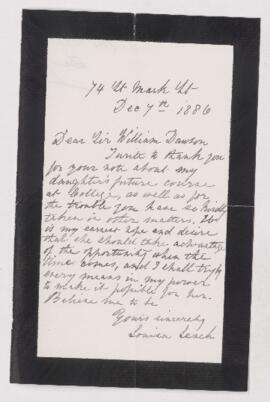 74 St Mark St
Dec 7th 1886
Dear Sir William Dawson
I write to thank you
for your note about my
daughter's future course
at College, as well as for
the trouble you have so kindly
taken in other matters. It
is my earnest hope and desire
that she should take advantage
of the opportunity when the
time comes, and I shall try by
every means in my power
to make it possible for her.
Believe me to be
Yours sincerely
Louisa Leach